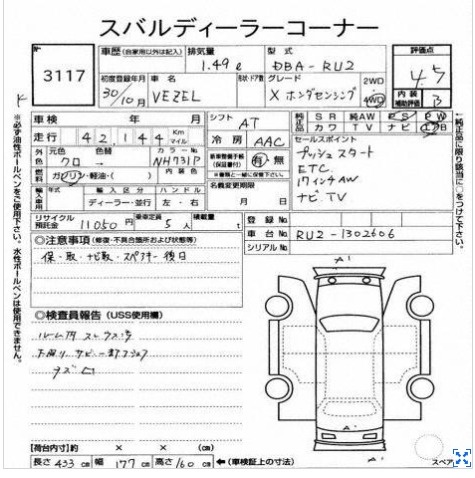 スバルディーラーコーナー
No.
3117
車歴 (自家用以外は記入)
排気量
1.49ℓ
型式
DBA-RU2
評価点
4.5
初度登録年月
30/10月
車名
VEZEL
形状・ドア数
グレード
X ホンダセンシング
2WD
4WD
内装
補助評価
B
車検 年 月
シフト
AT
純正品
SR 純AW PS PW
カワ TV ナビ エアB
走行 42,144 Km マイル
冷房
AAC
セールスポイント
プッシュスタート
ETC
17インチAW
ナビ TV
外色
元色
クロ
色替
カラーNo.
NH731P
内装色
新車整備手帳
(保証書付)
有・無
燃料
ガソリン・軽油・( )
名義変更期限
月 日
輸入車
年式
輸入区分
ディーラー・並行
ハンドル
左・右
リサイクル預託金
11050円
乗車定員
5人
積載量
t
登録No.
車台No.
RU2-1302606
シリアルNo.
◎注意事項 (修復・不具合箇所および状態等)
保・取・ナビ取・スペアキー 後日
◎検査員報告 (USS使用欄)
A'
A'
A'
【荷台内寸】約 × × (cm)
長さ 433cm 幅 177cm 高さ 160cm ←(車検証上の寸法)
スペア
※必ず油性ボールペンをご使用下さい。水性ボールペンは使用できません。
純正品に限り該当に○をつけて下さい。